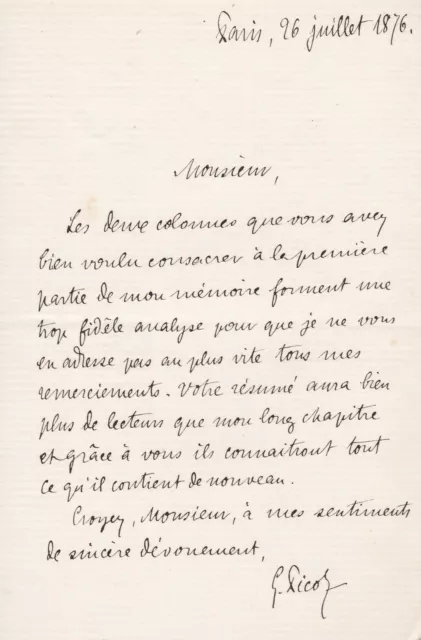 Paris, 26 juillet 1876.
Monsieur,
Les deux colonnes que vous avez
bien voulu consacrer à la première
partie de mon mémoire forment une
trop fidèle analyse pour que je ne vous
en adresse pas au plus vite tous mes
remerciements. Votre résumé aura bien
plus de lecteurs que mon long chapitre
et grâce à vous ils connaitront tout
ce qu'il contient de nouveau.
Croyez, Monsieur, à mes sentiments
de sincère dévouement,
G. Picot